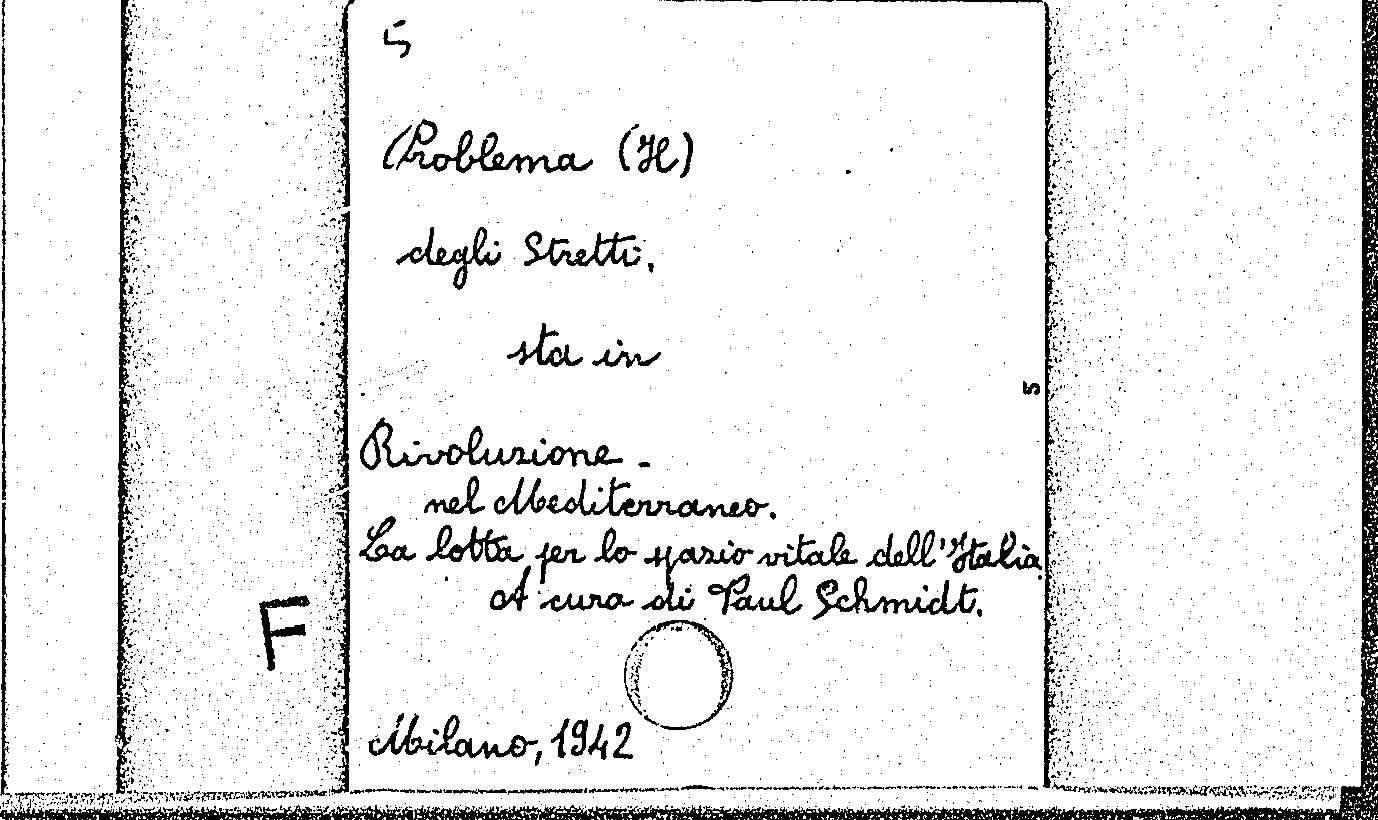 5
Problema (Il)
degli Stretti.
sta in
5
Rivoluzione -
nel Mediterraneo.
La lotta per lo spazio vitale dell'Italia.
A cura di Paul Schmidt.
F
Milano, 1942